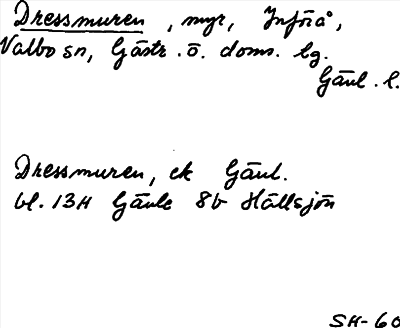 Dressmuren, myr, Injöå,
Valbo sn, Gästr. ö. doms. bg.
Gävl. l.
Dressmuren, ek Gävl.
bl. 13H Gävle 8b Hällsjön
SH-60